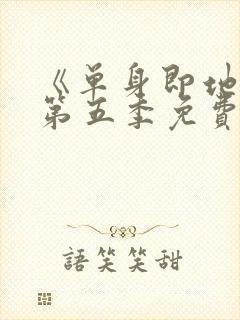 《单身即地
第五季免費
語笑笑甜